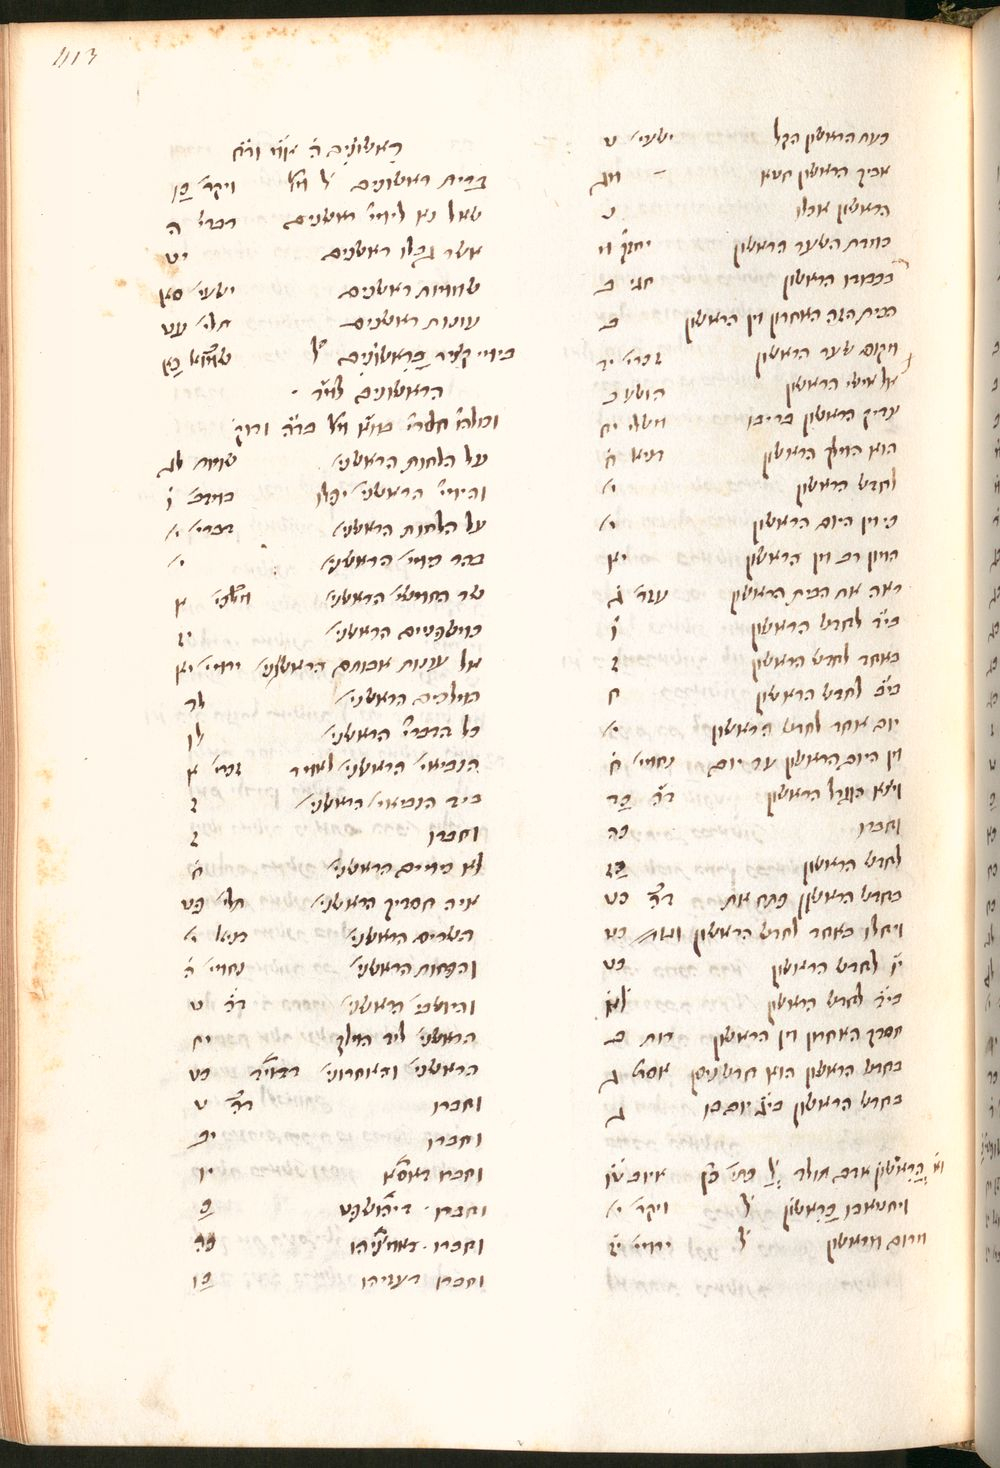 413
כעת הראשון הקל ישעי׳ ט
אביך הראשון חטא מג
הראשון אכלו נ
כמדת השער הראשון יחזק׳ מ
בכבודו הראשון חגי ב
הבית הזה האחרון מן הראשון ב
מקום שער הראשון זכרי׳ יד
אל אישי הראשון הושע ב
צדיק הראשון בריבו משלי יח
הוא המלך הראשון דניא׳ ח
לחדש הראשון י׳
כי מן היום הראשון י׳
המון רב מן הראשון יא
ראה את הבית הראשון עזר׳ ג
בי״ד לחדש הראשון ו
באחד לחדש הראשון ז
בי״ב לחדש הראשון ח
יום אחד לחדש הראשון י׳
מן היום הראשון עד יום נחמי׳ ח
ויצא הגורל הראשון ד״ה כד
וחברו כה
לחדש הראשון כז
בחדש הראשון פתח את ד״ה כט
ויחלו באחד לחדש הראשון כט
י״ו לחדש הראשון כט
בי״ד לחדש הראשון לה
חסדך האחרון מן הראשון רות ג
בחדש הראשון הוא חדש ניסן אסת׳ ג
בחדש הראשון בי״ג יום בו ג
הראשון אדם תולד ל׳ איוב טו
ויחטאהו כראשון ל׳ ויקר׳ ט
מרום מראשון ל׳ ירמי׳ יז
ראשונים ה׳
ברית ראשונים ל׳ ויקר׳ כו
שאל נא לימי׳ ראשנים דברי׳ ד
אשר גבלו ראשנים יט
שוממות ראשנים ישעי׳ סא
עונות ראשנים תלי׳ עט
בימי קציר בראשונים ל׳ שמואל כא
הראשונים
על הלחת הראשני׳ שמות לד
והימי׳ הראשני׳ יפלו במדב׳ ו
על הלחות הראשני׳ דברי׳ י׳
בהר כימי׳ הראשני׳ י׳
שר החמשי׳ הראשני׳ מלכי׳ א
כמשפטים הראשני׳ יז
אל עונות אבותם הראשני׳ ירמי׳ יא
המלכים הראשני׳ לד
כל הדברי׳ הראשני׳ לו
הנביאי׳ הראשני׳ לאמר זכרי׳ א
ביד הנביאי׳ הראשני׳ ז
וחברו ז
לא כימים הראשני׳ ח
איה חסדיך הראשני׳ תלי׳ פט
השרים הראשני׳ דניא׳ י׳
והפחות הראשני׳ נחמי׳ ה
והיושבי׳ הראשני׳ ד״ה ט
הראשני׳ ליד המלך יח
הראשני׳ והאחרוני׳ כט
וחברו ד״ה ט
וחברו יב
וחברו דאסא יו
וחברו דיהושפט כ
וחברו דאמציהו כה
וחברו דעזיהו כו